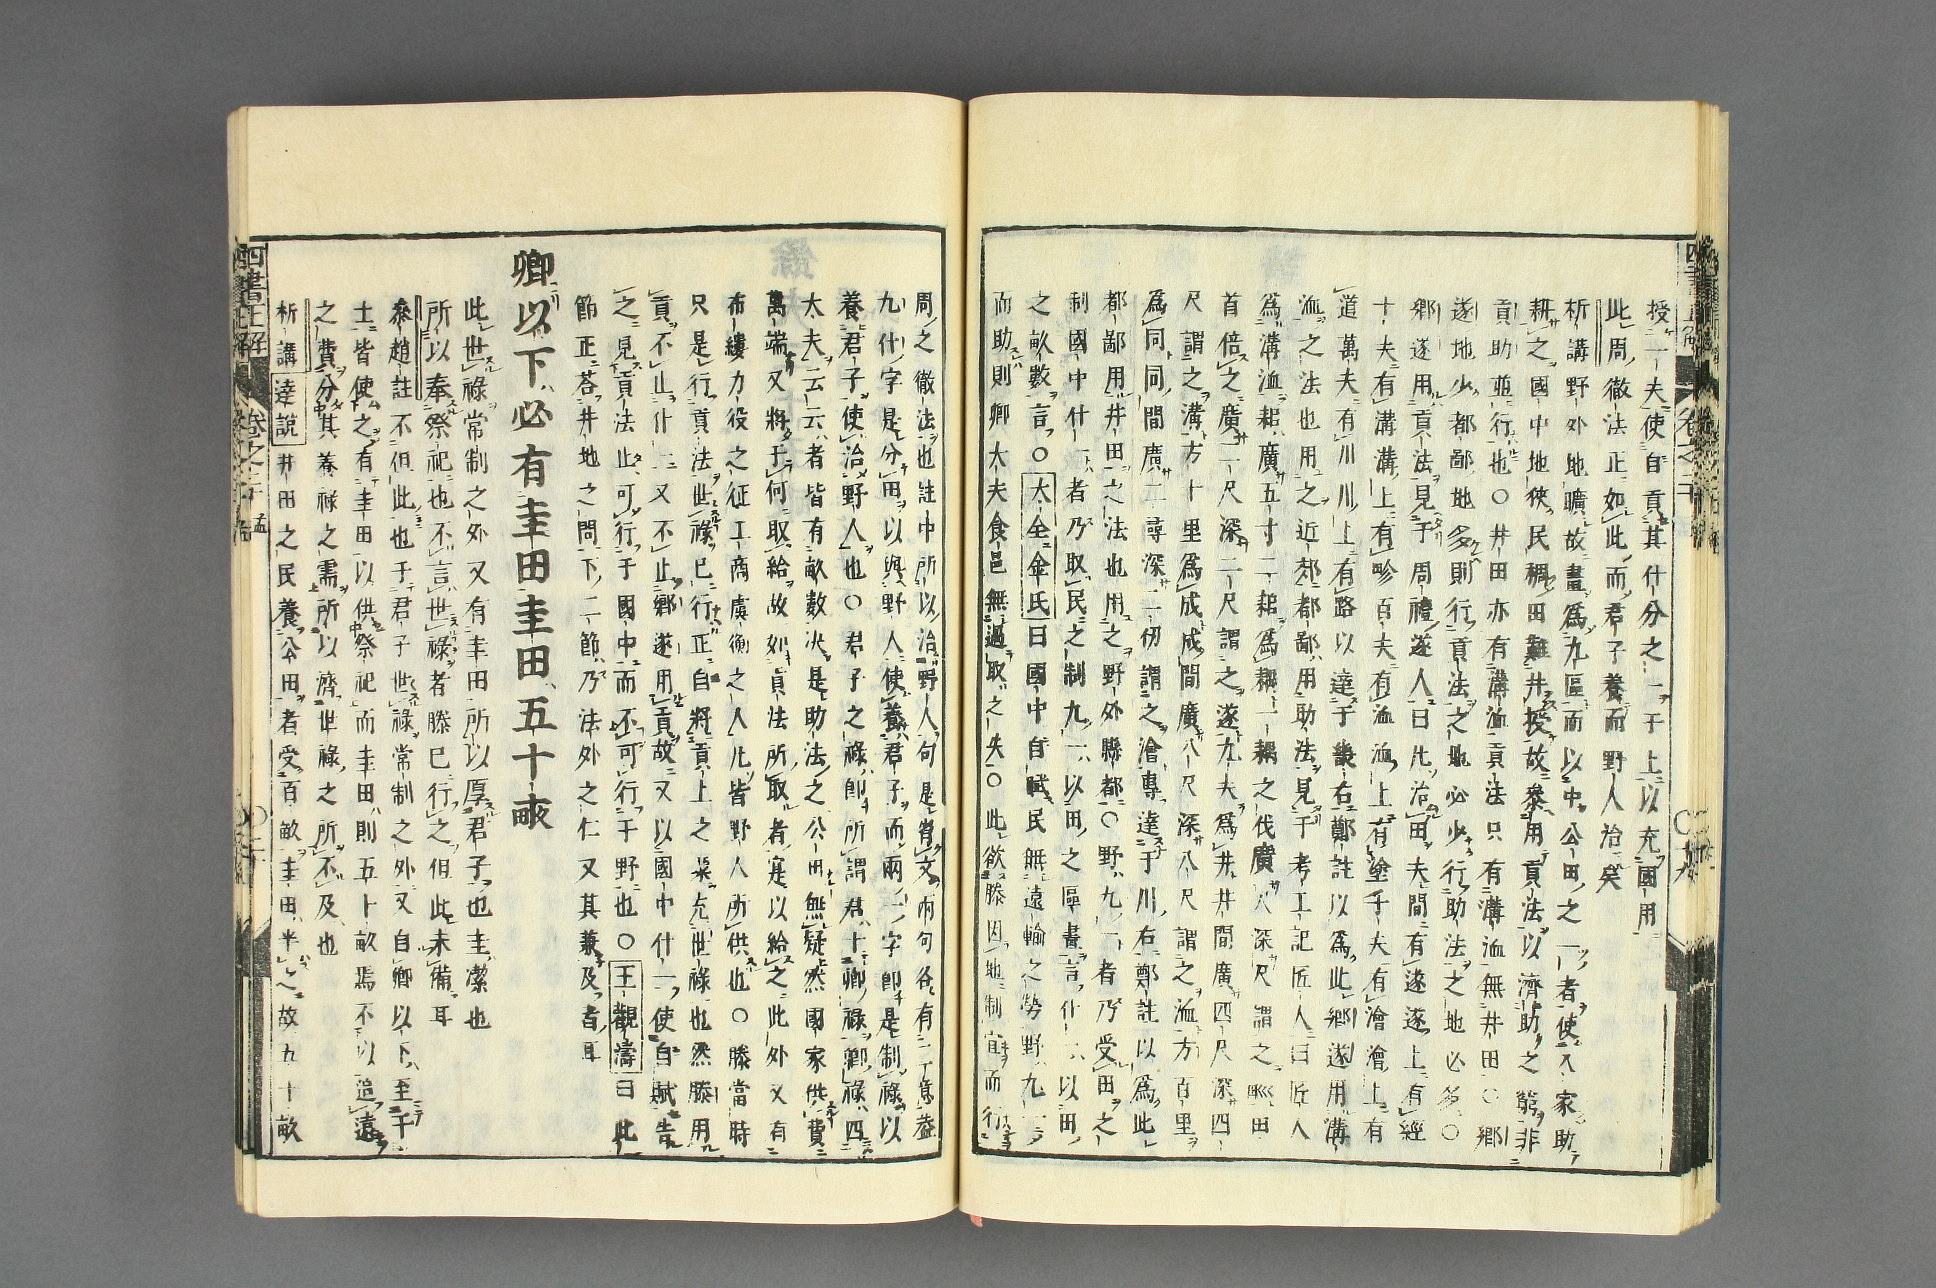 授一夫使自貢其什分之一于上以充國用
此周徹法正如此而君子養而野人治矣
析講野外地曠故畫爲九區而以中公田之一者使八家助
耕之國中地狹民稠田難井授故參用貢法以濟助之窮非
貢助並行也○井田亦有溝洫貢法只有溝洫無井田○鄉
遂地少都鄙地多則行貢法之地必少行助法之地必多○
鄉遂用貢法見于周禮遂人曰凡治田夫間有遂遂上有經
十夫有溝溝上有畛百夫有洫洫上有塗千夫有澮澮上有
道萬夫有川川上有路以達于畿右鄭註以爲此鄉遂用溝
洫之法也用之近郊都鄙用助法見于考工記匠人曰匠人
爲溝洫耜廣五寸二耜爲耦一耦之伐廣八深尺謂之𤰕田
首倍之廣二尺深二尺謂之遂九夫爲井井間廣四尺深四
尺謂之溝方十里爲成成間廣八尺深八尺謂之洫方百里
爲同同間廣二尋深二仞謂之澮專達于川右鄭註以爲此
都鄙用井田之法也用之野外縣都○野九一者乃受田之
制國中什一者乃取民之制九一以田之區畫言什一以田
之畝數言○大全金氏曰國中自賦民無遠輸之勞野九一
而助則卿大夫食邑無過取之失○此欲滕因地制宜而行
周之徹法也註中所以治野人句是肯文兩句各有二意蓋
九什字是分田以與野人使養君子而兩一字卽是制祿以
養君子使治野人也○君子之祿卽所謂君十卿祿卿祿四
大夫云云者皆有畝數決是助法之公田無疑然國家供費
萬端又將于何取給故如貢法所取者寔以給之此外又有
布縷力役之征工商虞衡之人凡皆野人所供也○滕當時
只是行貢法世祿已行正自將貢上之粟充世祿也然滕用
貢不止什一又不止鄉遂用貢故又以國中什一使自賦告
之見貢法止可行于國中而不可行于野也○王觀濤曰此
節正荅井地之問下二節乃法外之仁又其兼及者耳
卿以下必有圭田圭田五十畝
此世祿常制之外又有圭田所以厚君子也圭潔也
所以奉祭祀也不言世祿者滕已行之但此未備耳
參趙註不但此也于君子世祿常制之外又自卿以下至于
士皆使之有圭田以供祭祀而圭田則五十畝焉不以追遠
之費分其養祿之需所以濟世祿之所不及也
析講達說井田之民養公田者受百畝圭田半之故五十畝